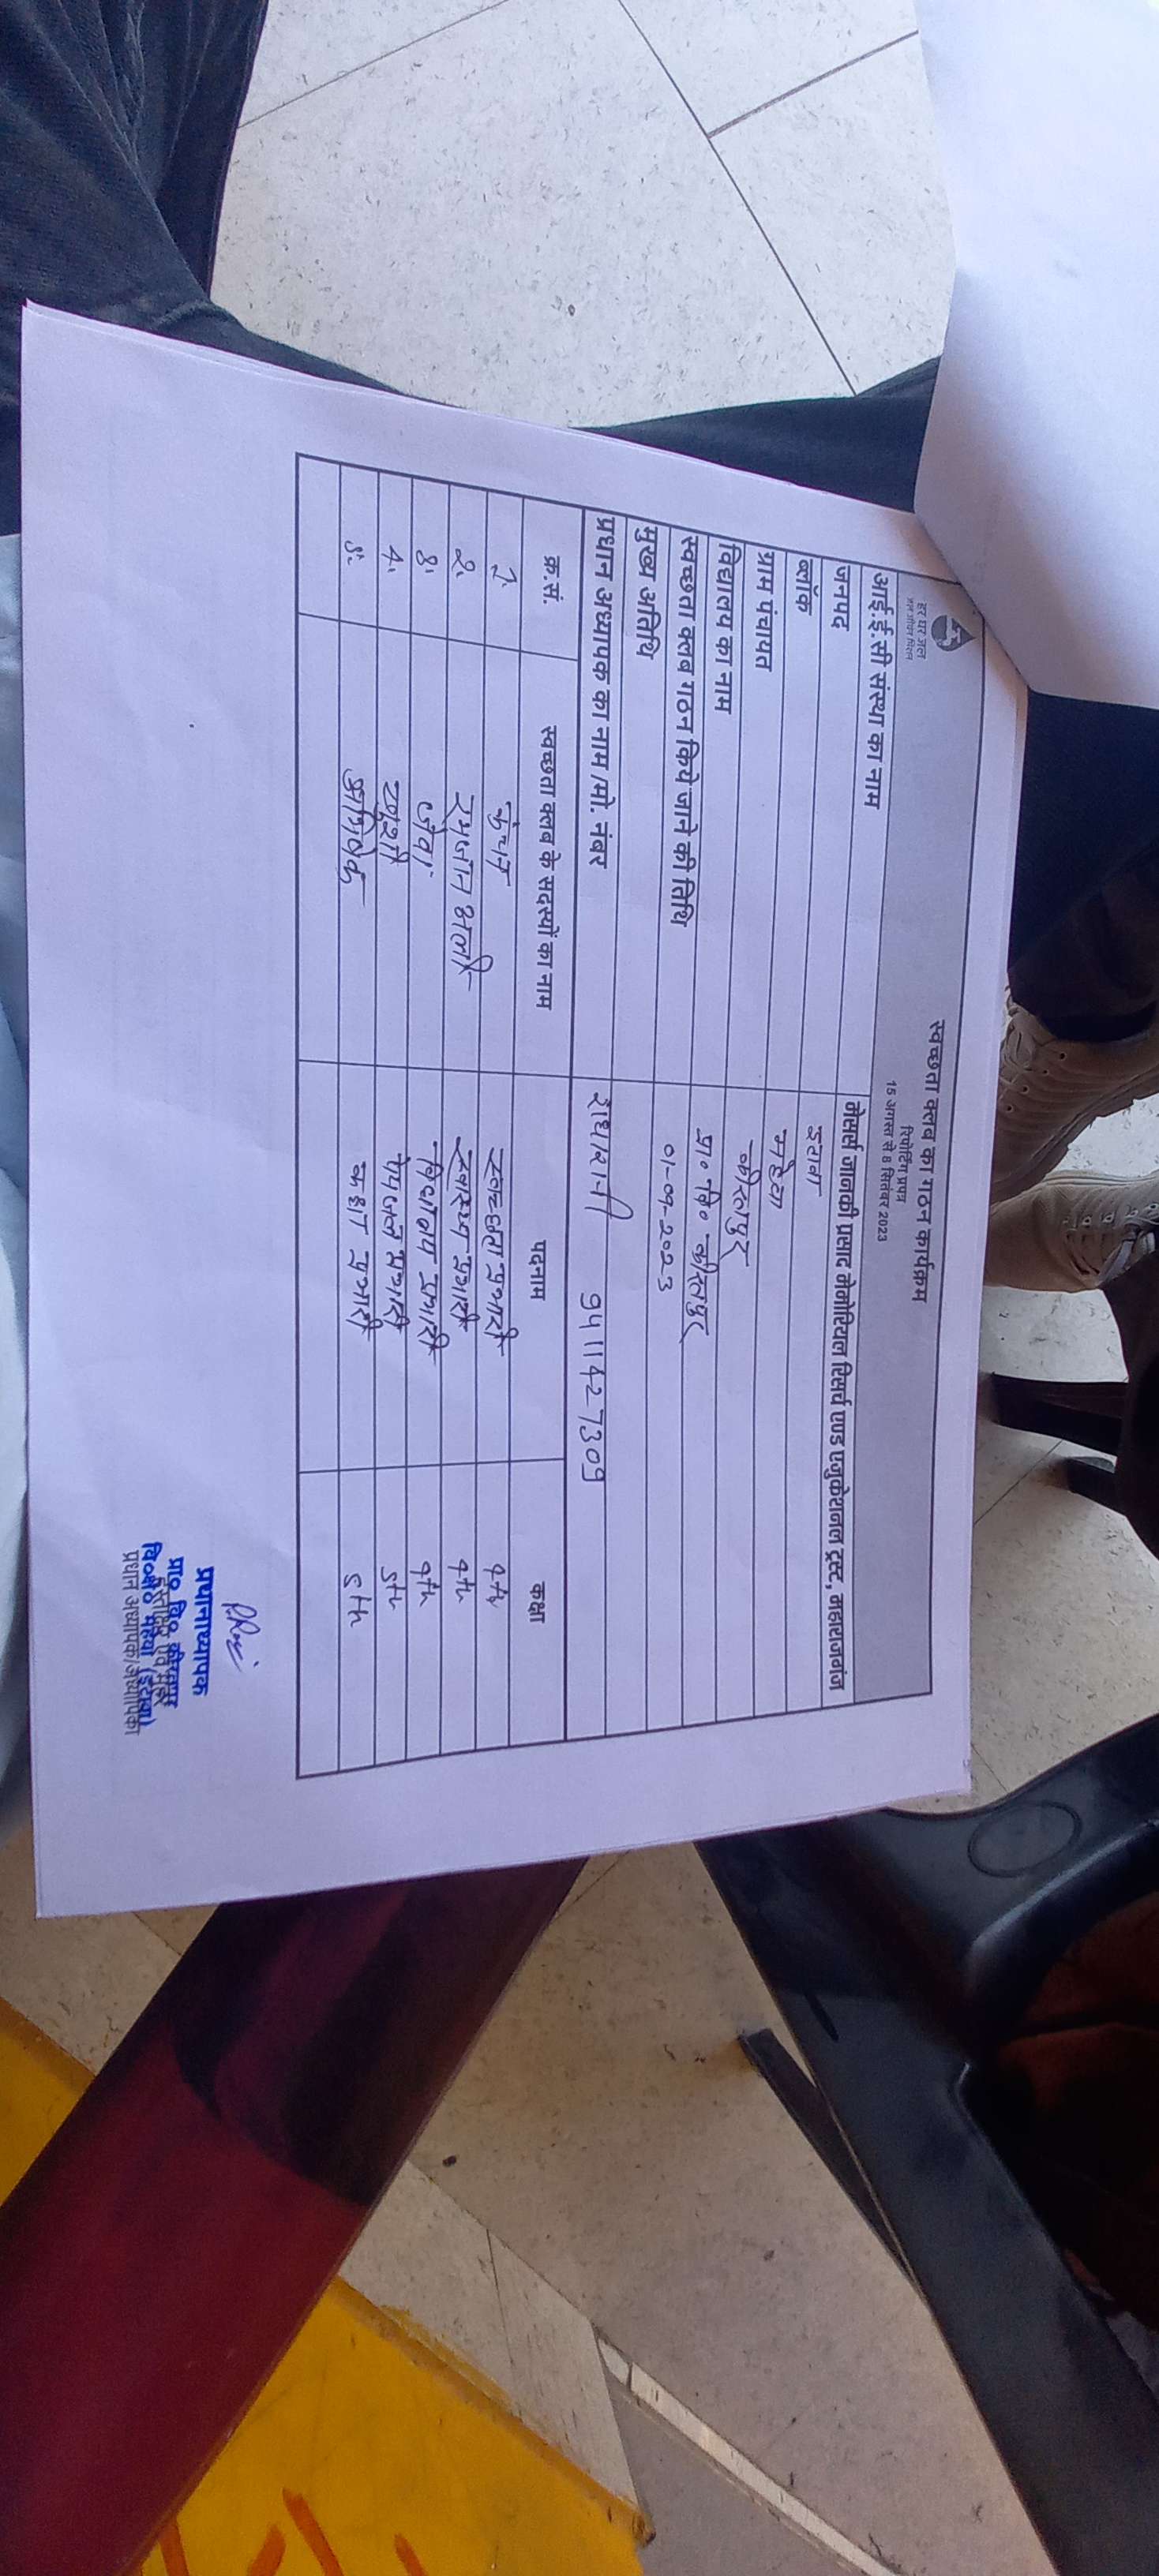 हर घर जल
जल जीवन मिशन
स्वच्छता क्लब का गठन कार्यक्रम
रिपोर्टिंग प्रपत्र
15 अगस्त से 8 सितंबर 2023
आई.ई.सी संस्था का नाम मेसर्स जानकी प्रसाद मेमोरियल रिसर्च एण्ड एजुकेशनल ट्रस्ट, महाराजगंज
जनपद इटावा
ब्लॉक महेवा
ग्राम पंचायत कीरतपुर
विद्यालय का नाम प्रा० वि० कीरतपुर
स्वच्छता क्लब गठन किये जाने की तिथि 01-09-2023
मुख्य अतिथि
प्रधान अध्यापक का नाम /मो. नंबर 9411427309
क्र.सं. स्वच्छता क्लब के सदस्यों का नाम पदनाम कक्षा
1. कंचन स्वच्छता प्रभारी 4th
2. रमजान अली स्वास्थ्य प्रभारी 4th
3. जोया विद्यालय प्रभारी 4th
4. खुशी पेयजल प्रभारी 5th
5. अभिषेक कक्षा प्रभारी 5th
प्रधानाध्यापक
प्रा० वि० कीरतपुर
हस्ताक्षर एवं मुहर
वि०क्षे० महेवा (इटावा)
प्रधान अध्यापक/अध्यापिका